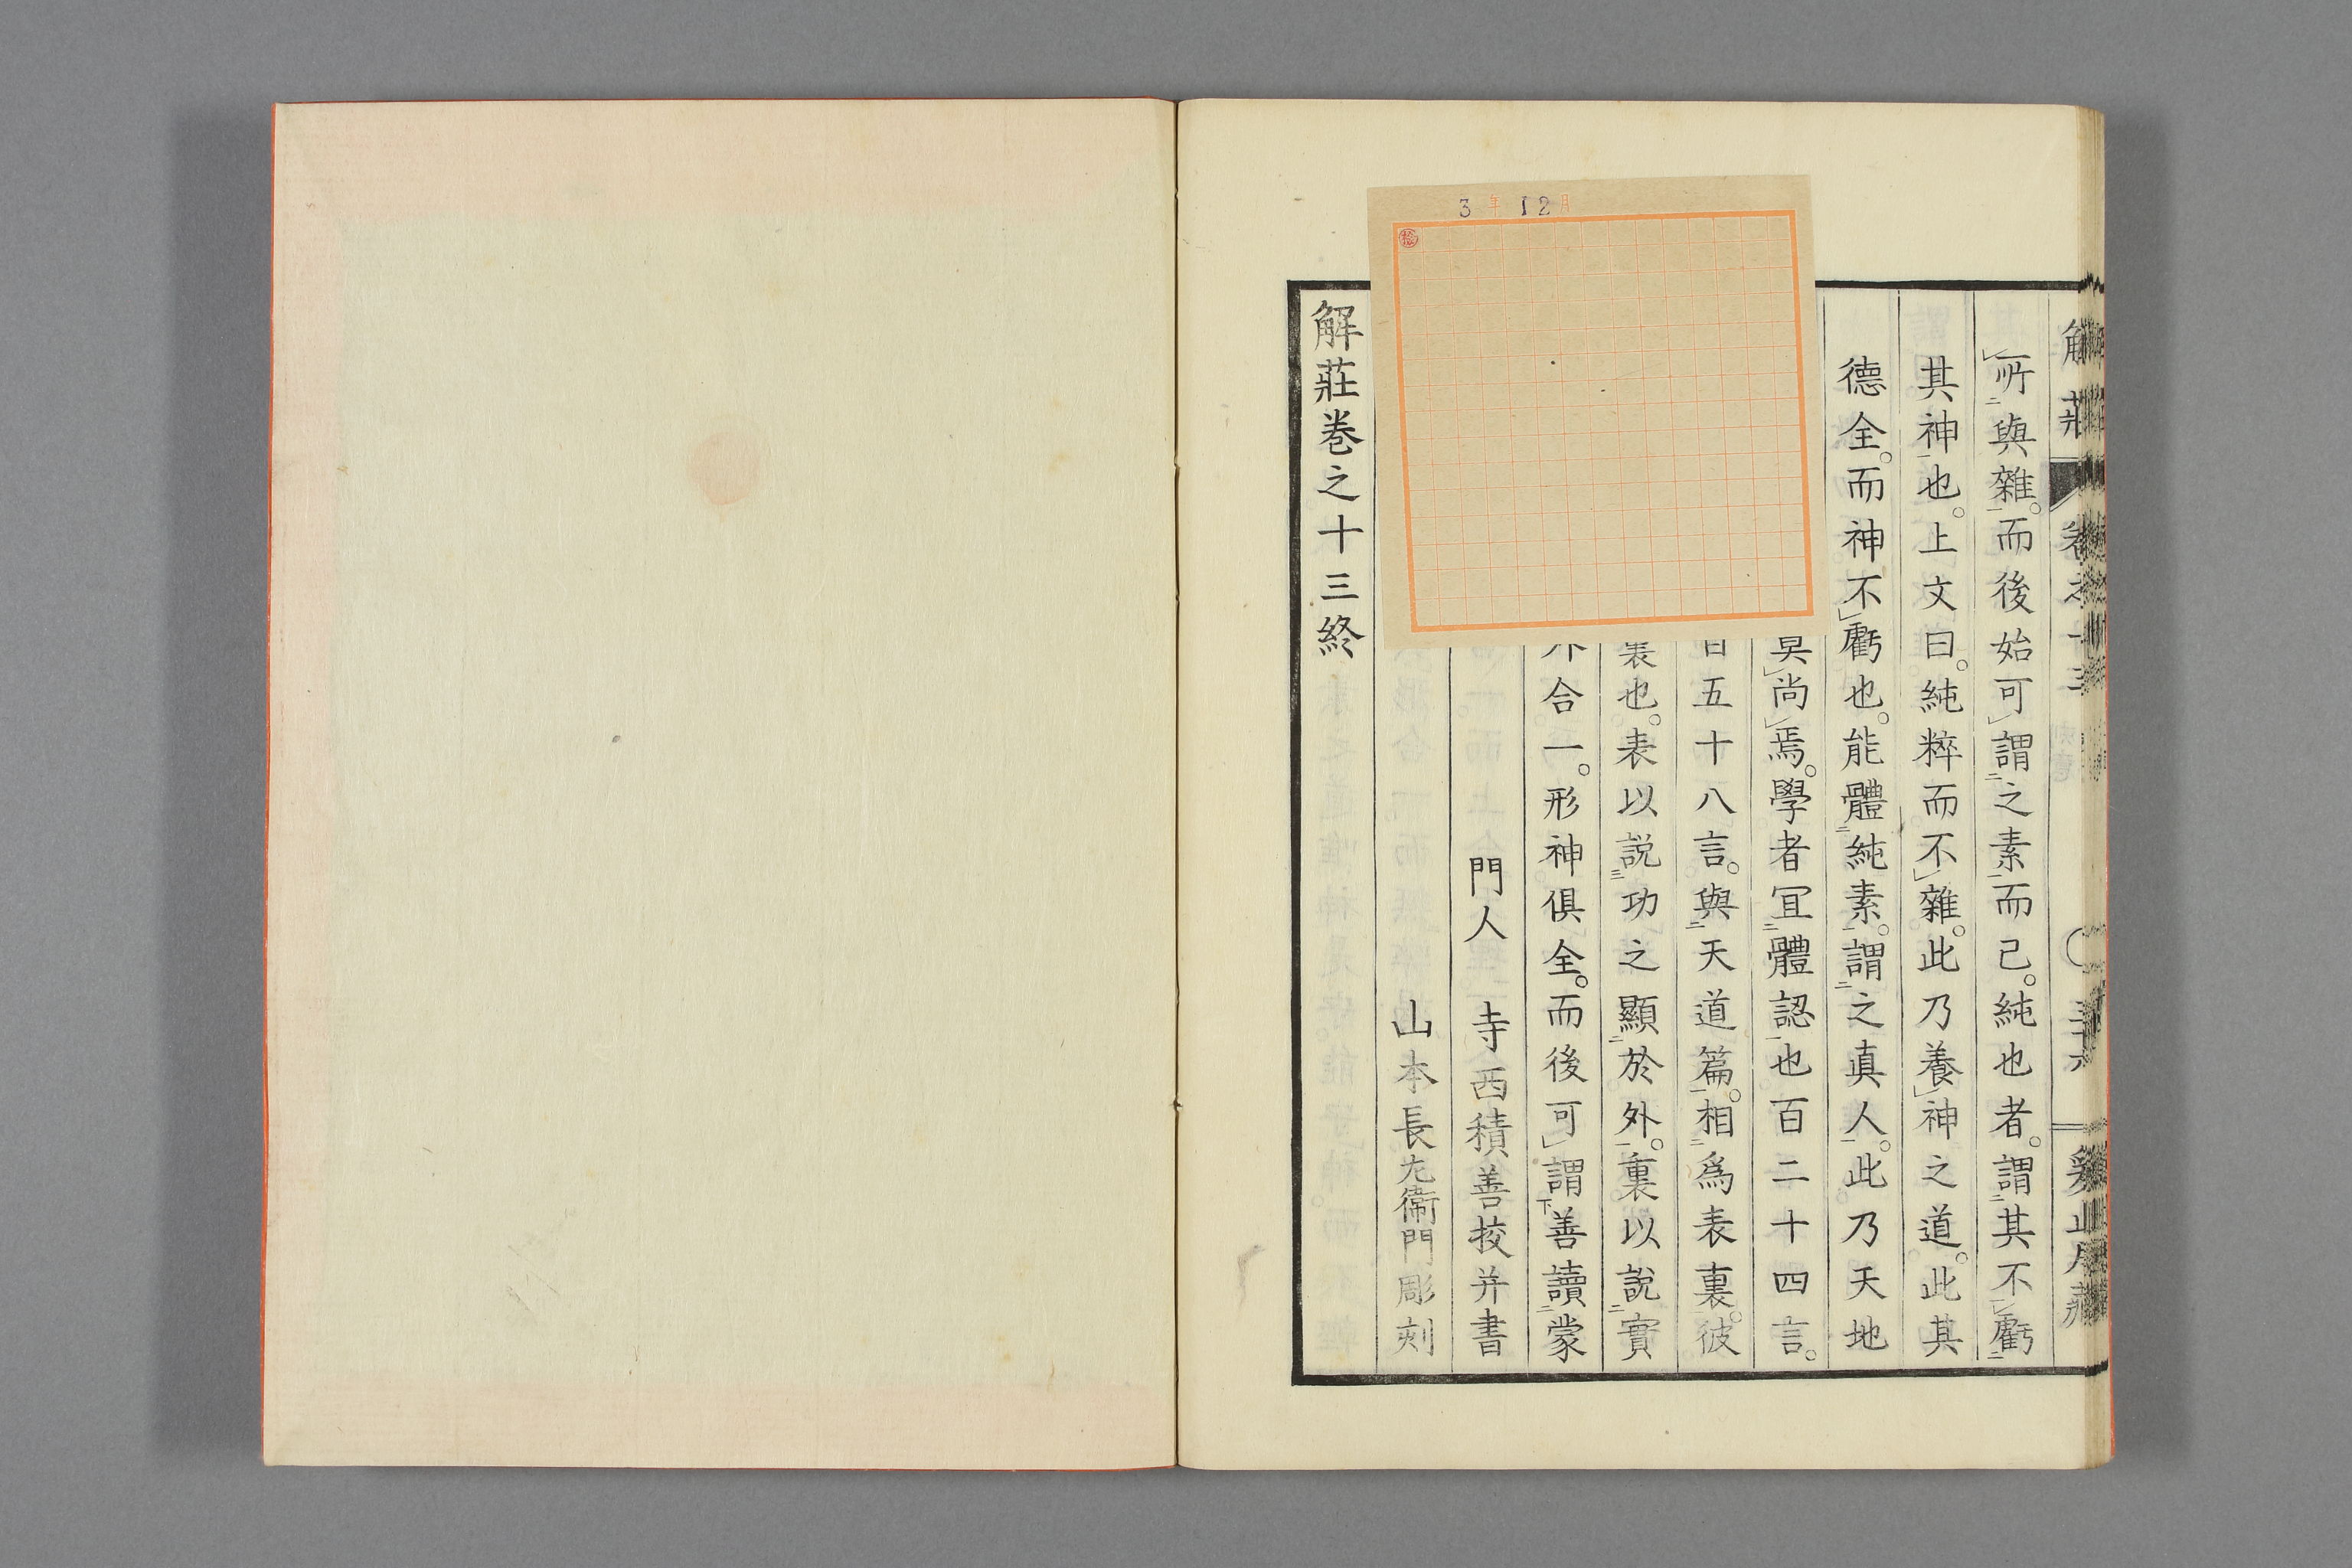 所與雜。而後始可謂之素而已。純也者。謂其不虧
其神也。上文曰。純粹而不雜。此乃養神之道。此其
德全。而神不虧也。能體純素。謂之真人。此乃天地
尚焉。學者冝體認也百二十四言。
百五十八言。與天道篇。相爲表裏。彼
裏也。表以説功之顯於外。裏以説實
外合一。形神俱全。而後可謂善讀蒙
門人 寺西積善挍并書
山本長左衞門彫刻
解莊巻之十三終
3年12月